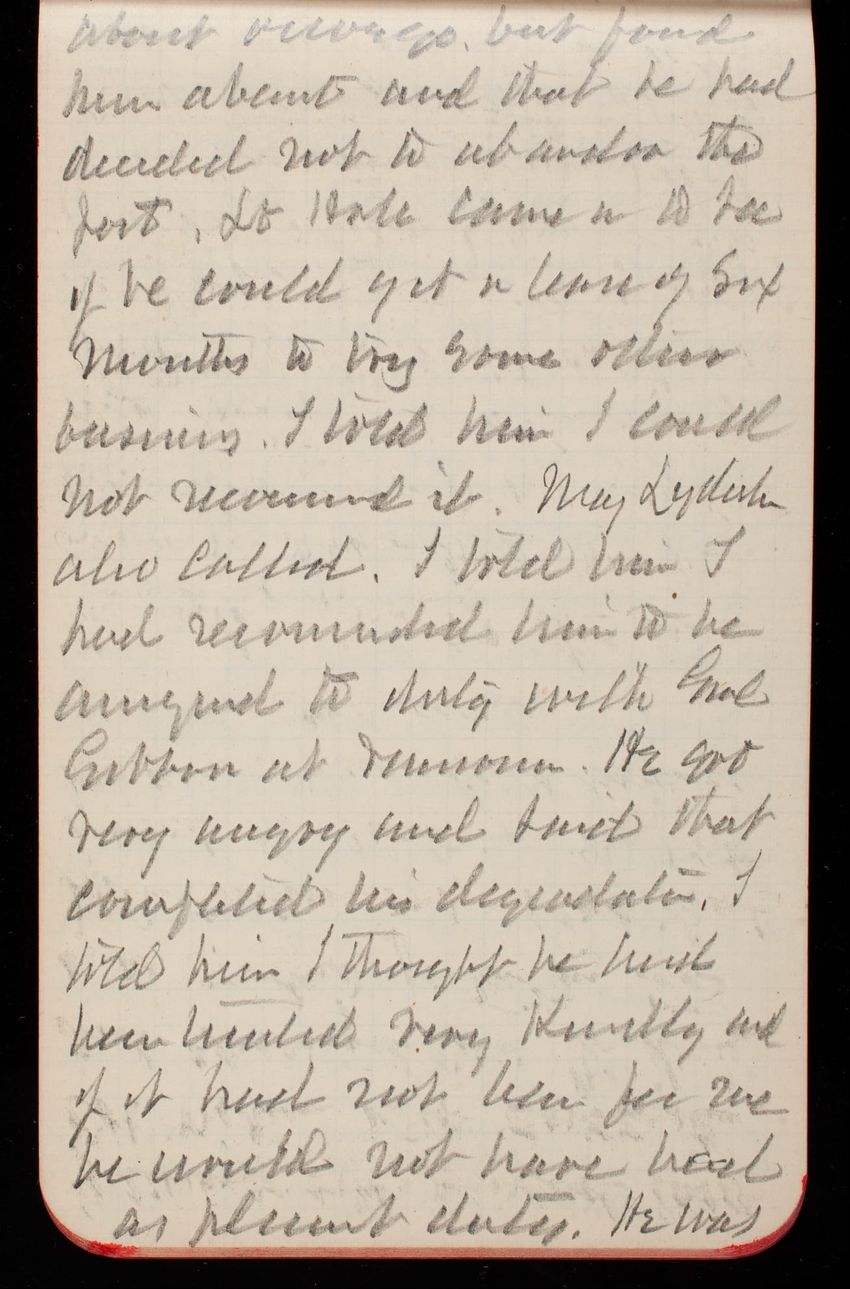 about but found
him absent and that he had
decided not to abandon the
fort, Lt Hale came in to see
if he could get a leave of six
months to try some other
business. I told him I could
not recommend it. Maj Lydecker
also called. I told him I
had recommended him to be
assigned to duty with Genl
Gibbon at He got
very angry and said that
completed his degradation. I
told him I thought he had
been treated very Kindly and
if it had not been for me
he would not have had
as pleasant duty. He was